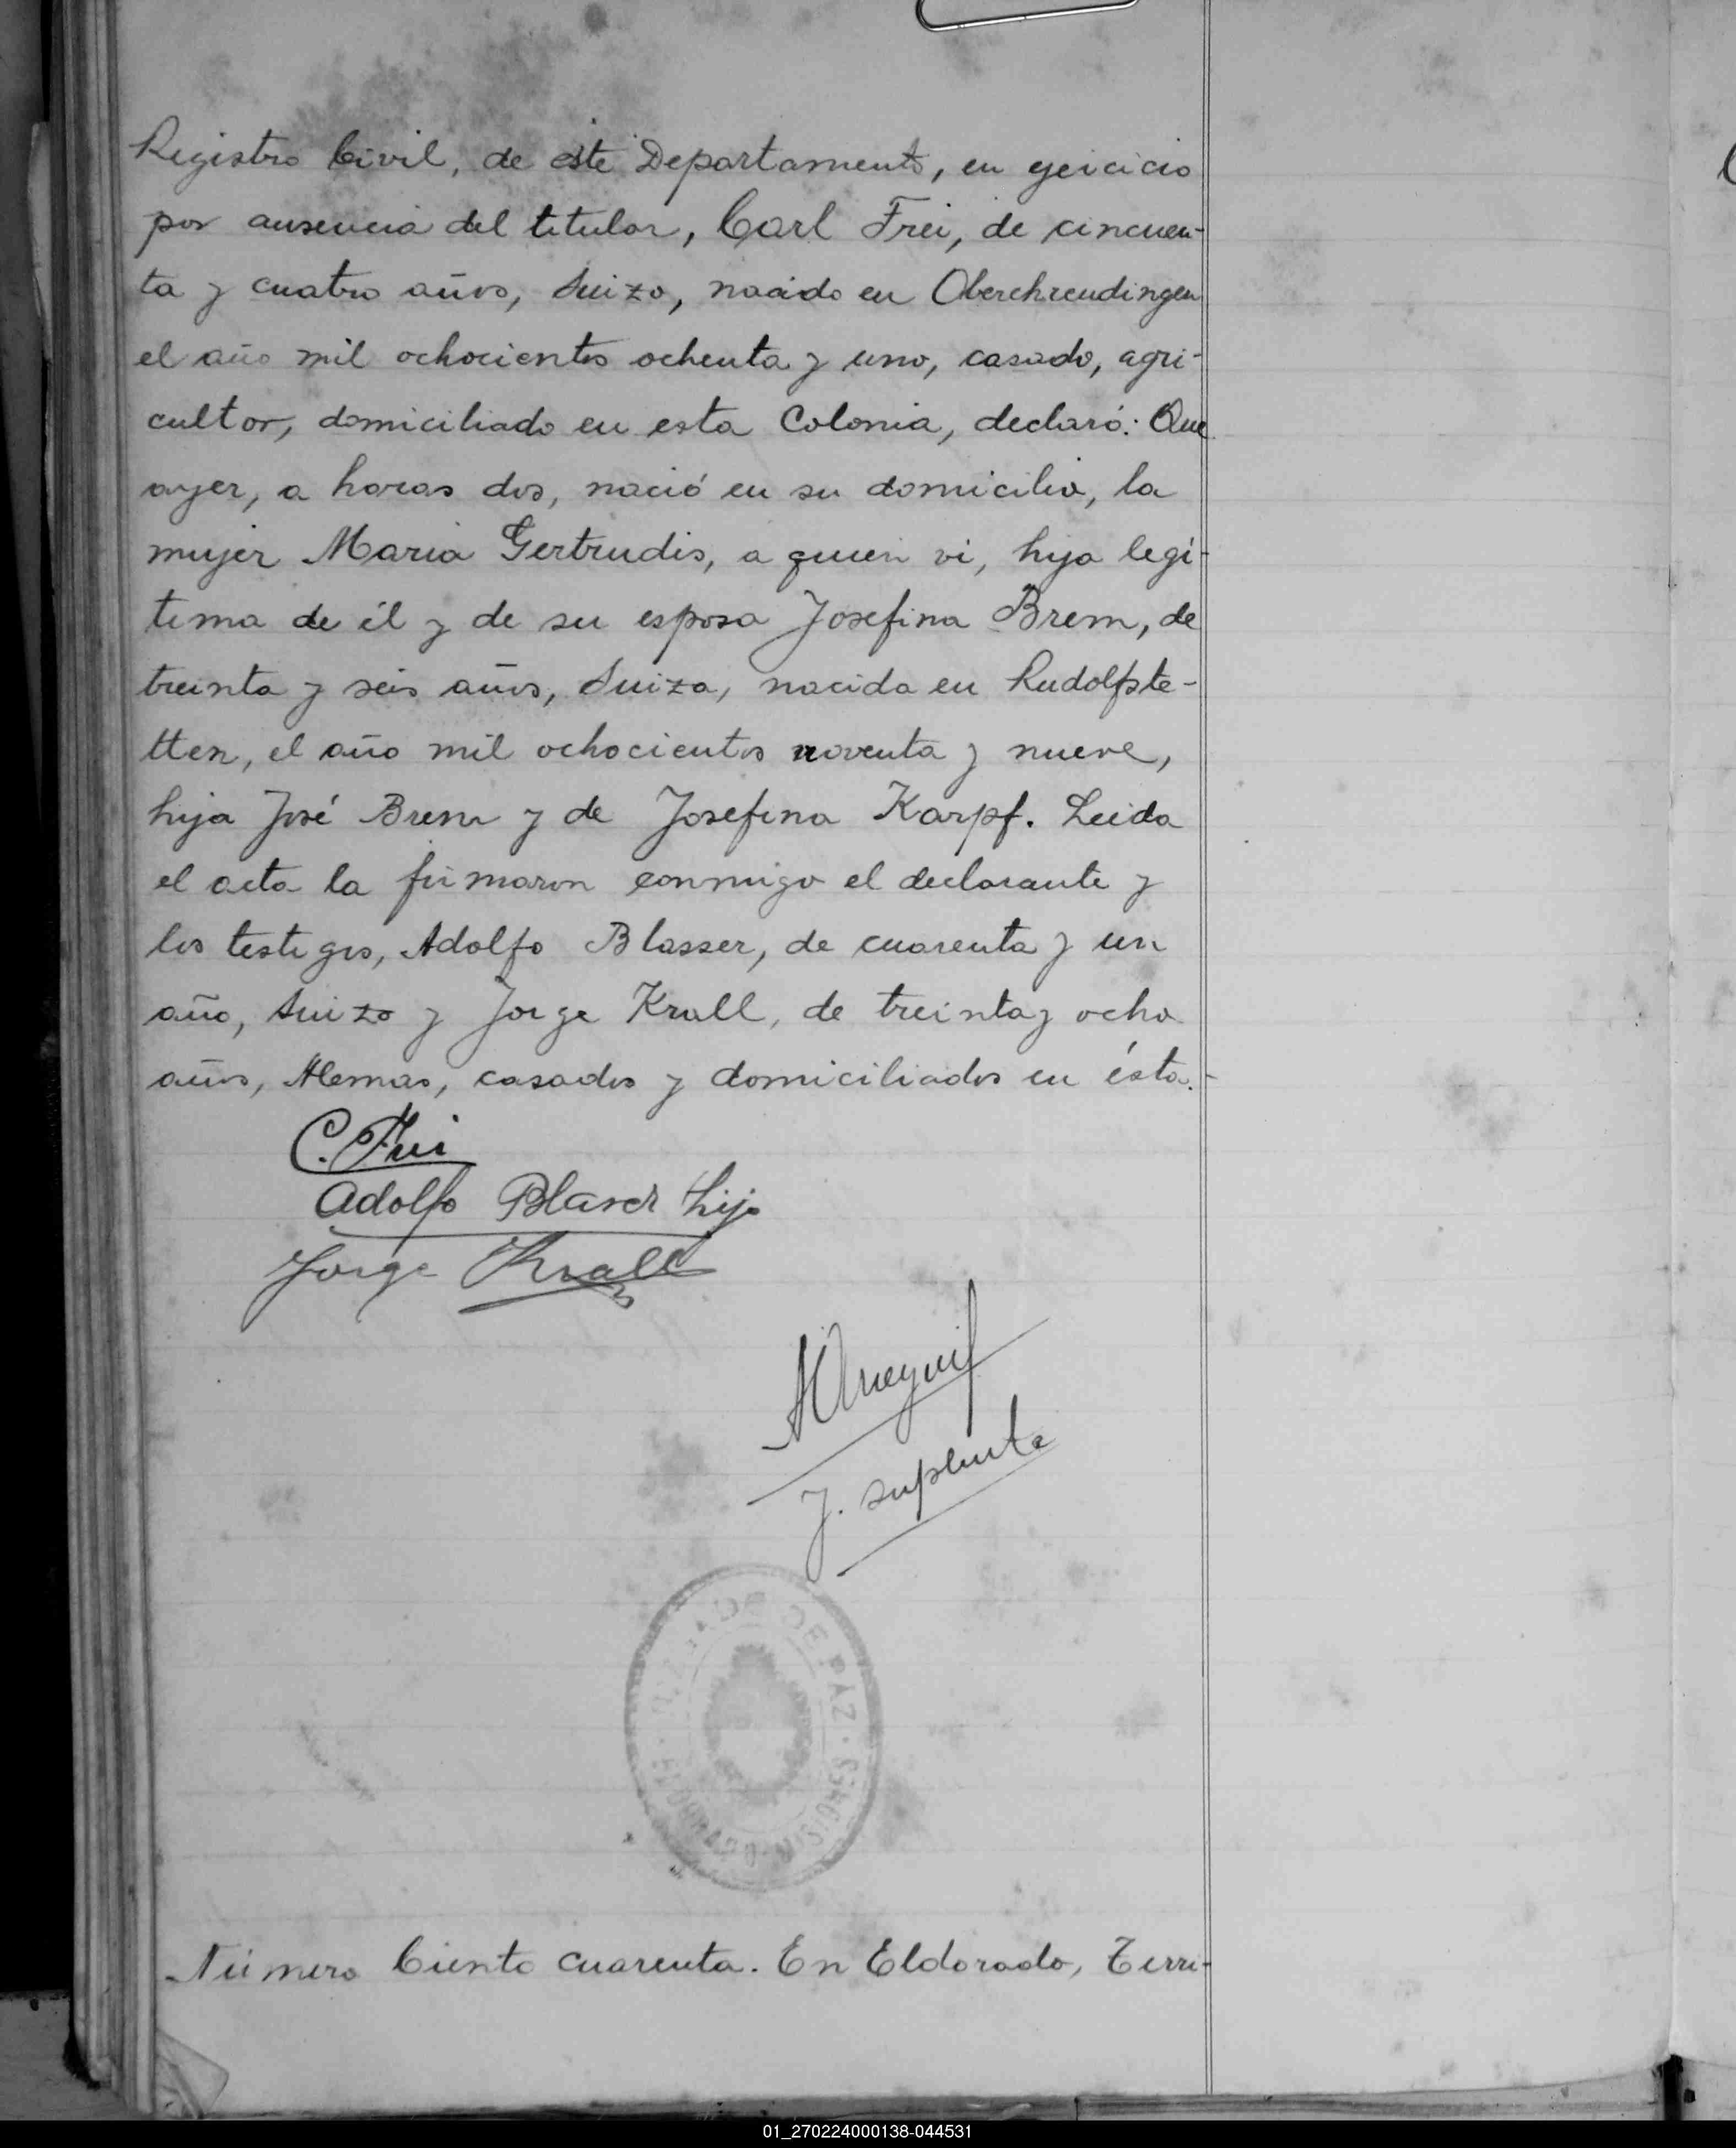 Registro Civil, de este Departamento, en ejercicio
por ausencia del titular, Carl Frei, de cincuen-
ta y cuatro años, Suizo, nacido en Oberehrendingen
el año mil ochocientos ochenta y uno, casado, agri-
cultor, domiciliado en esta Colonia, declaró: Que
ayer, a horas dos, nació en su domicilio, la
mujer Maria Gertrudis, a quien vi, hija legi-
tima de él y de su esposa Josefina Brem, de
treinta y seis años, Suiza, nacida en Rudolfste-
tten, el año mil ochocientos noventa y nueve,
hija José Brem y de Josefina Karpf. Leida
el acta la firmaron conmigo el declarante y
los testigos, Adolfo Blasser, de cuarenta y un
año, Suizo y Jorge Krall, de treinta y ocho
años, Aleman, casados y domiciliados en ésta.-
C. Frei
Adolfo Blaser hijo
Jorge Krall
J. suplente
JUZGADO DE PAZ
ELDORADO MISIONES
Número Ciento cuarenta. En Eldorado, Terri-
01_270224000138-044531